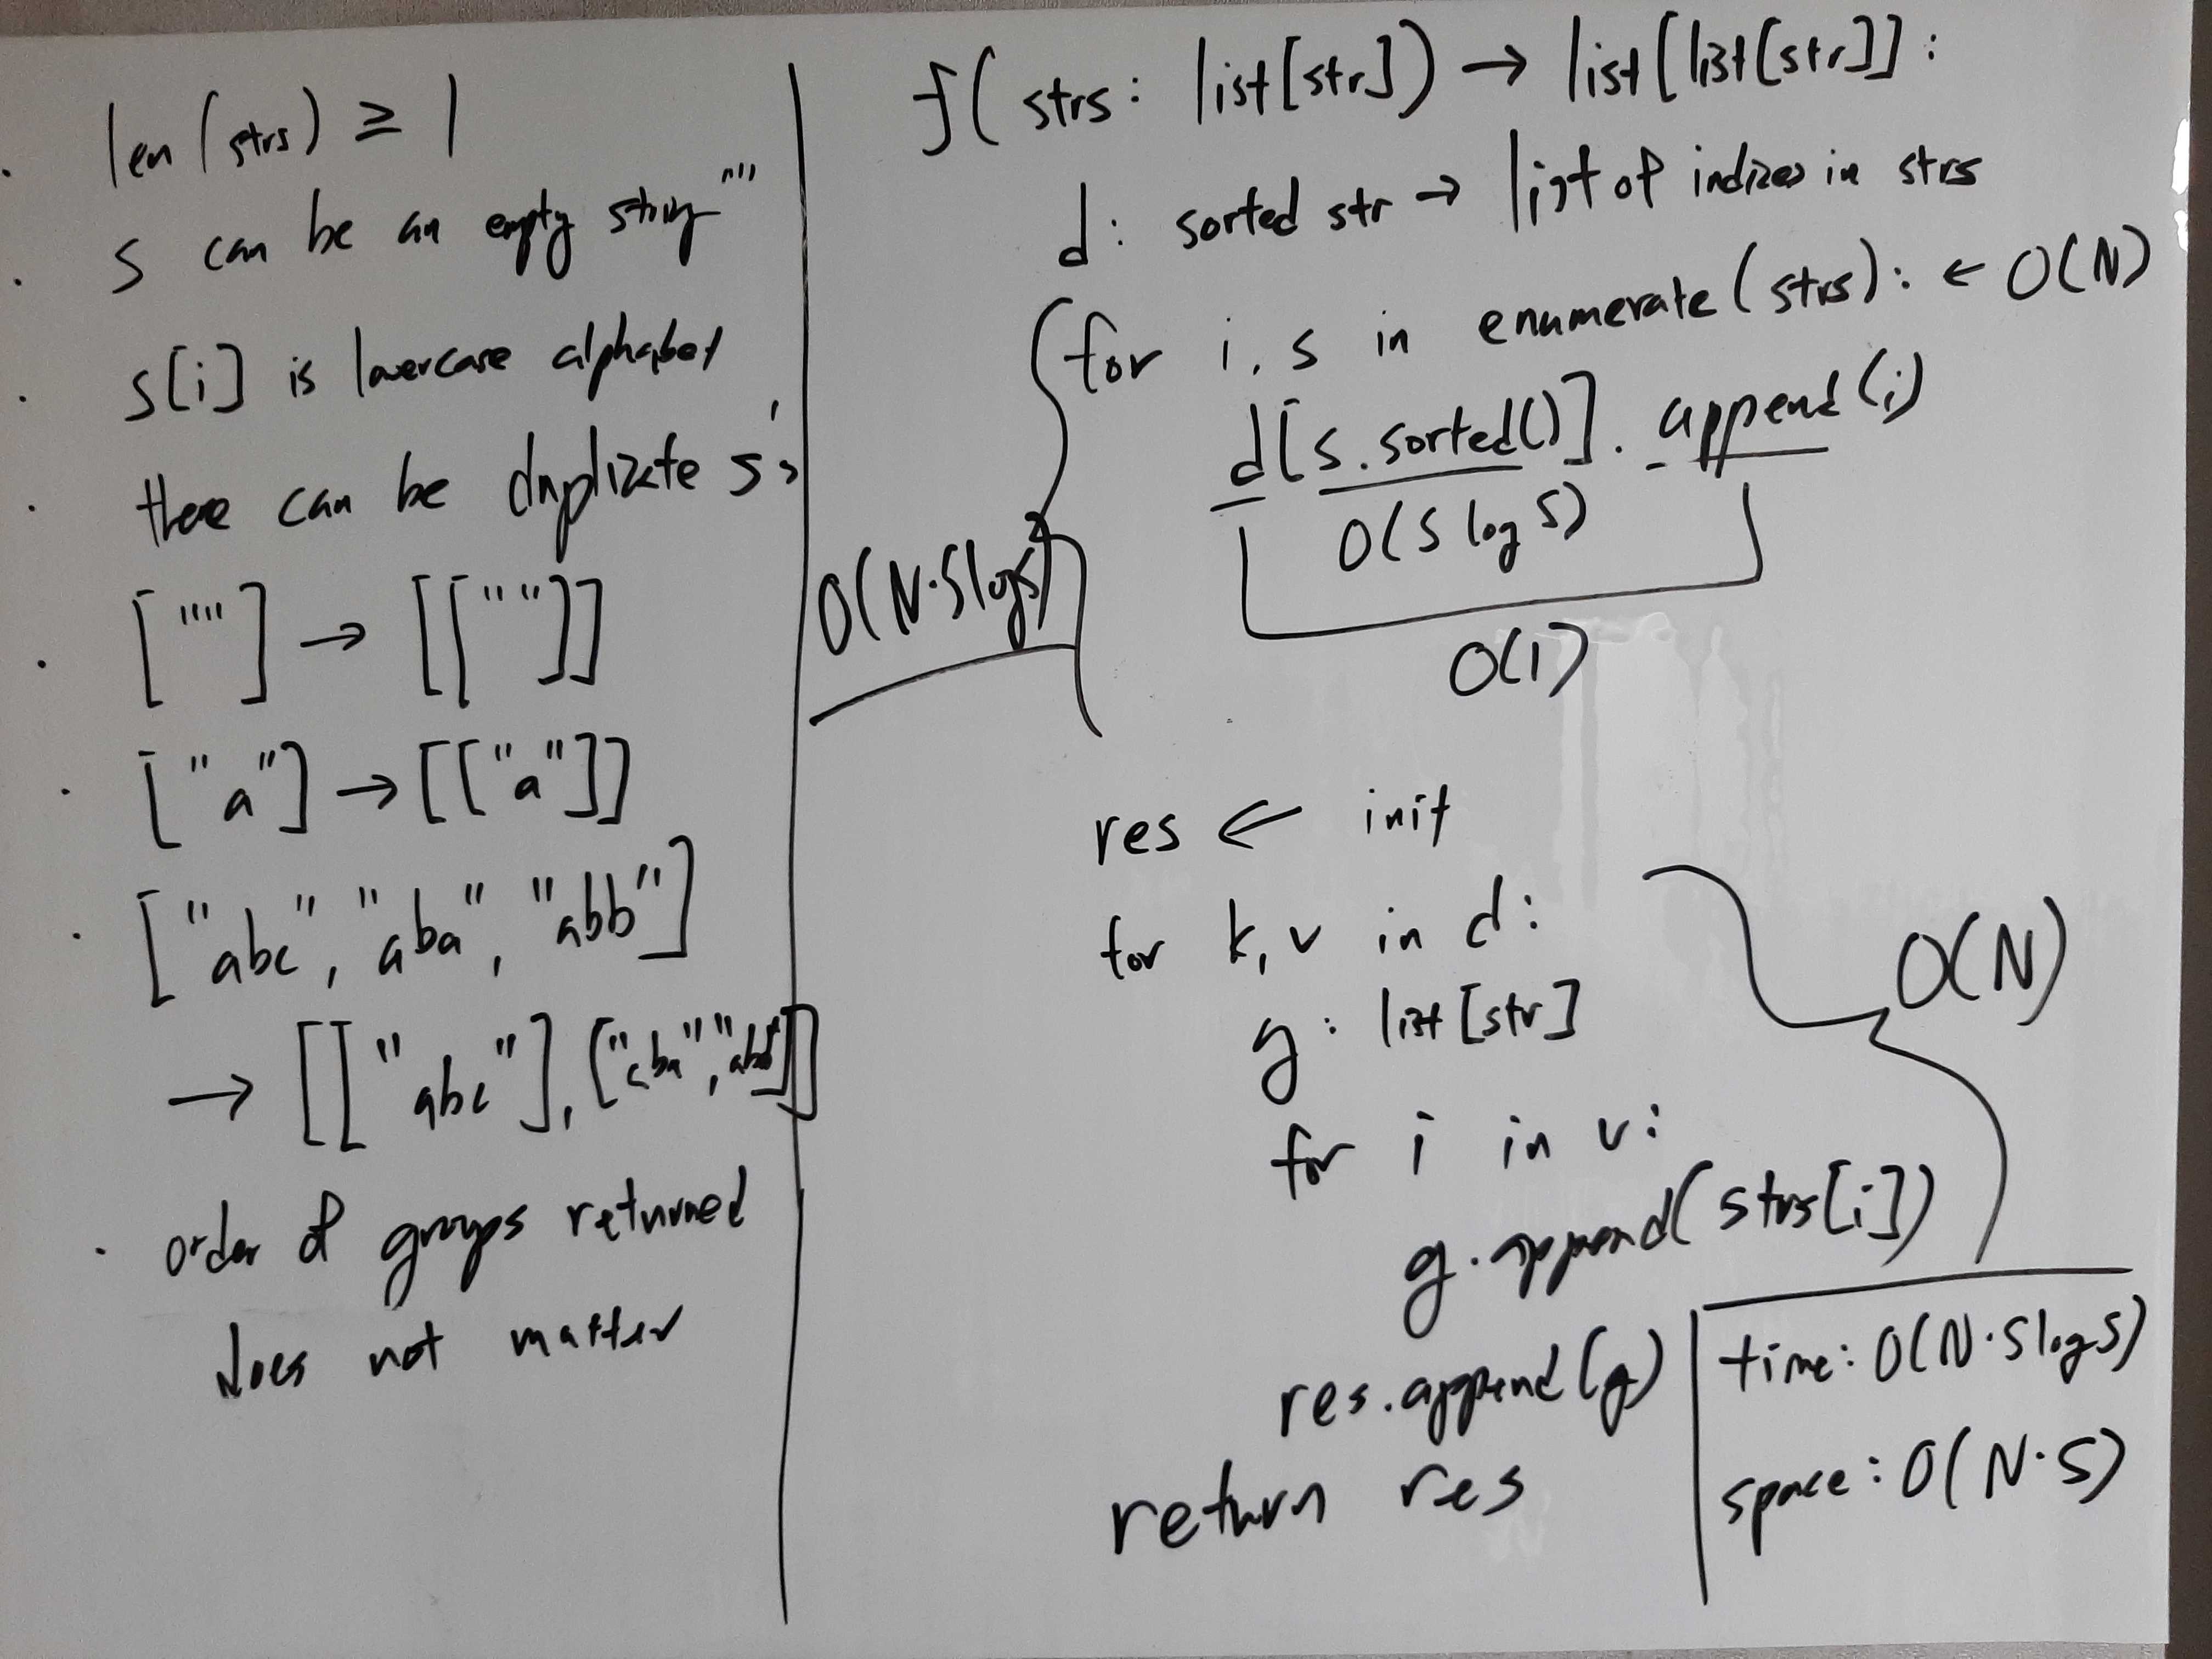 · len(strs) ≥ 1
· s can be an empty string ""
· s[i] is lowercase alphabet
· there can be duplicate s's
· [""] → [[""]]
· ["a"] → [["a"]]
· ["abc", "aba", "abb"]
→ [["abc"], ["aba", "abb"]]
· order of groups returned
does not matter
f(strs: list[str]) → list[list[str]]:
d: sorted str → list of indices in strs
for i, s in enumerate(strs): ← O(N)
d[s.sorted()].append(i)
O(S log S)
O(1)
O(N·S log S)
res ← init
for k, v in d:
g: list[str]
for i in v:
g.append(strs[i])
res.append(g)
return res
O(N)
time: O(N·S log S)
space: O(N·S)